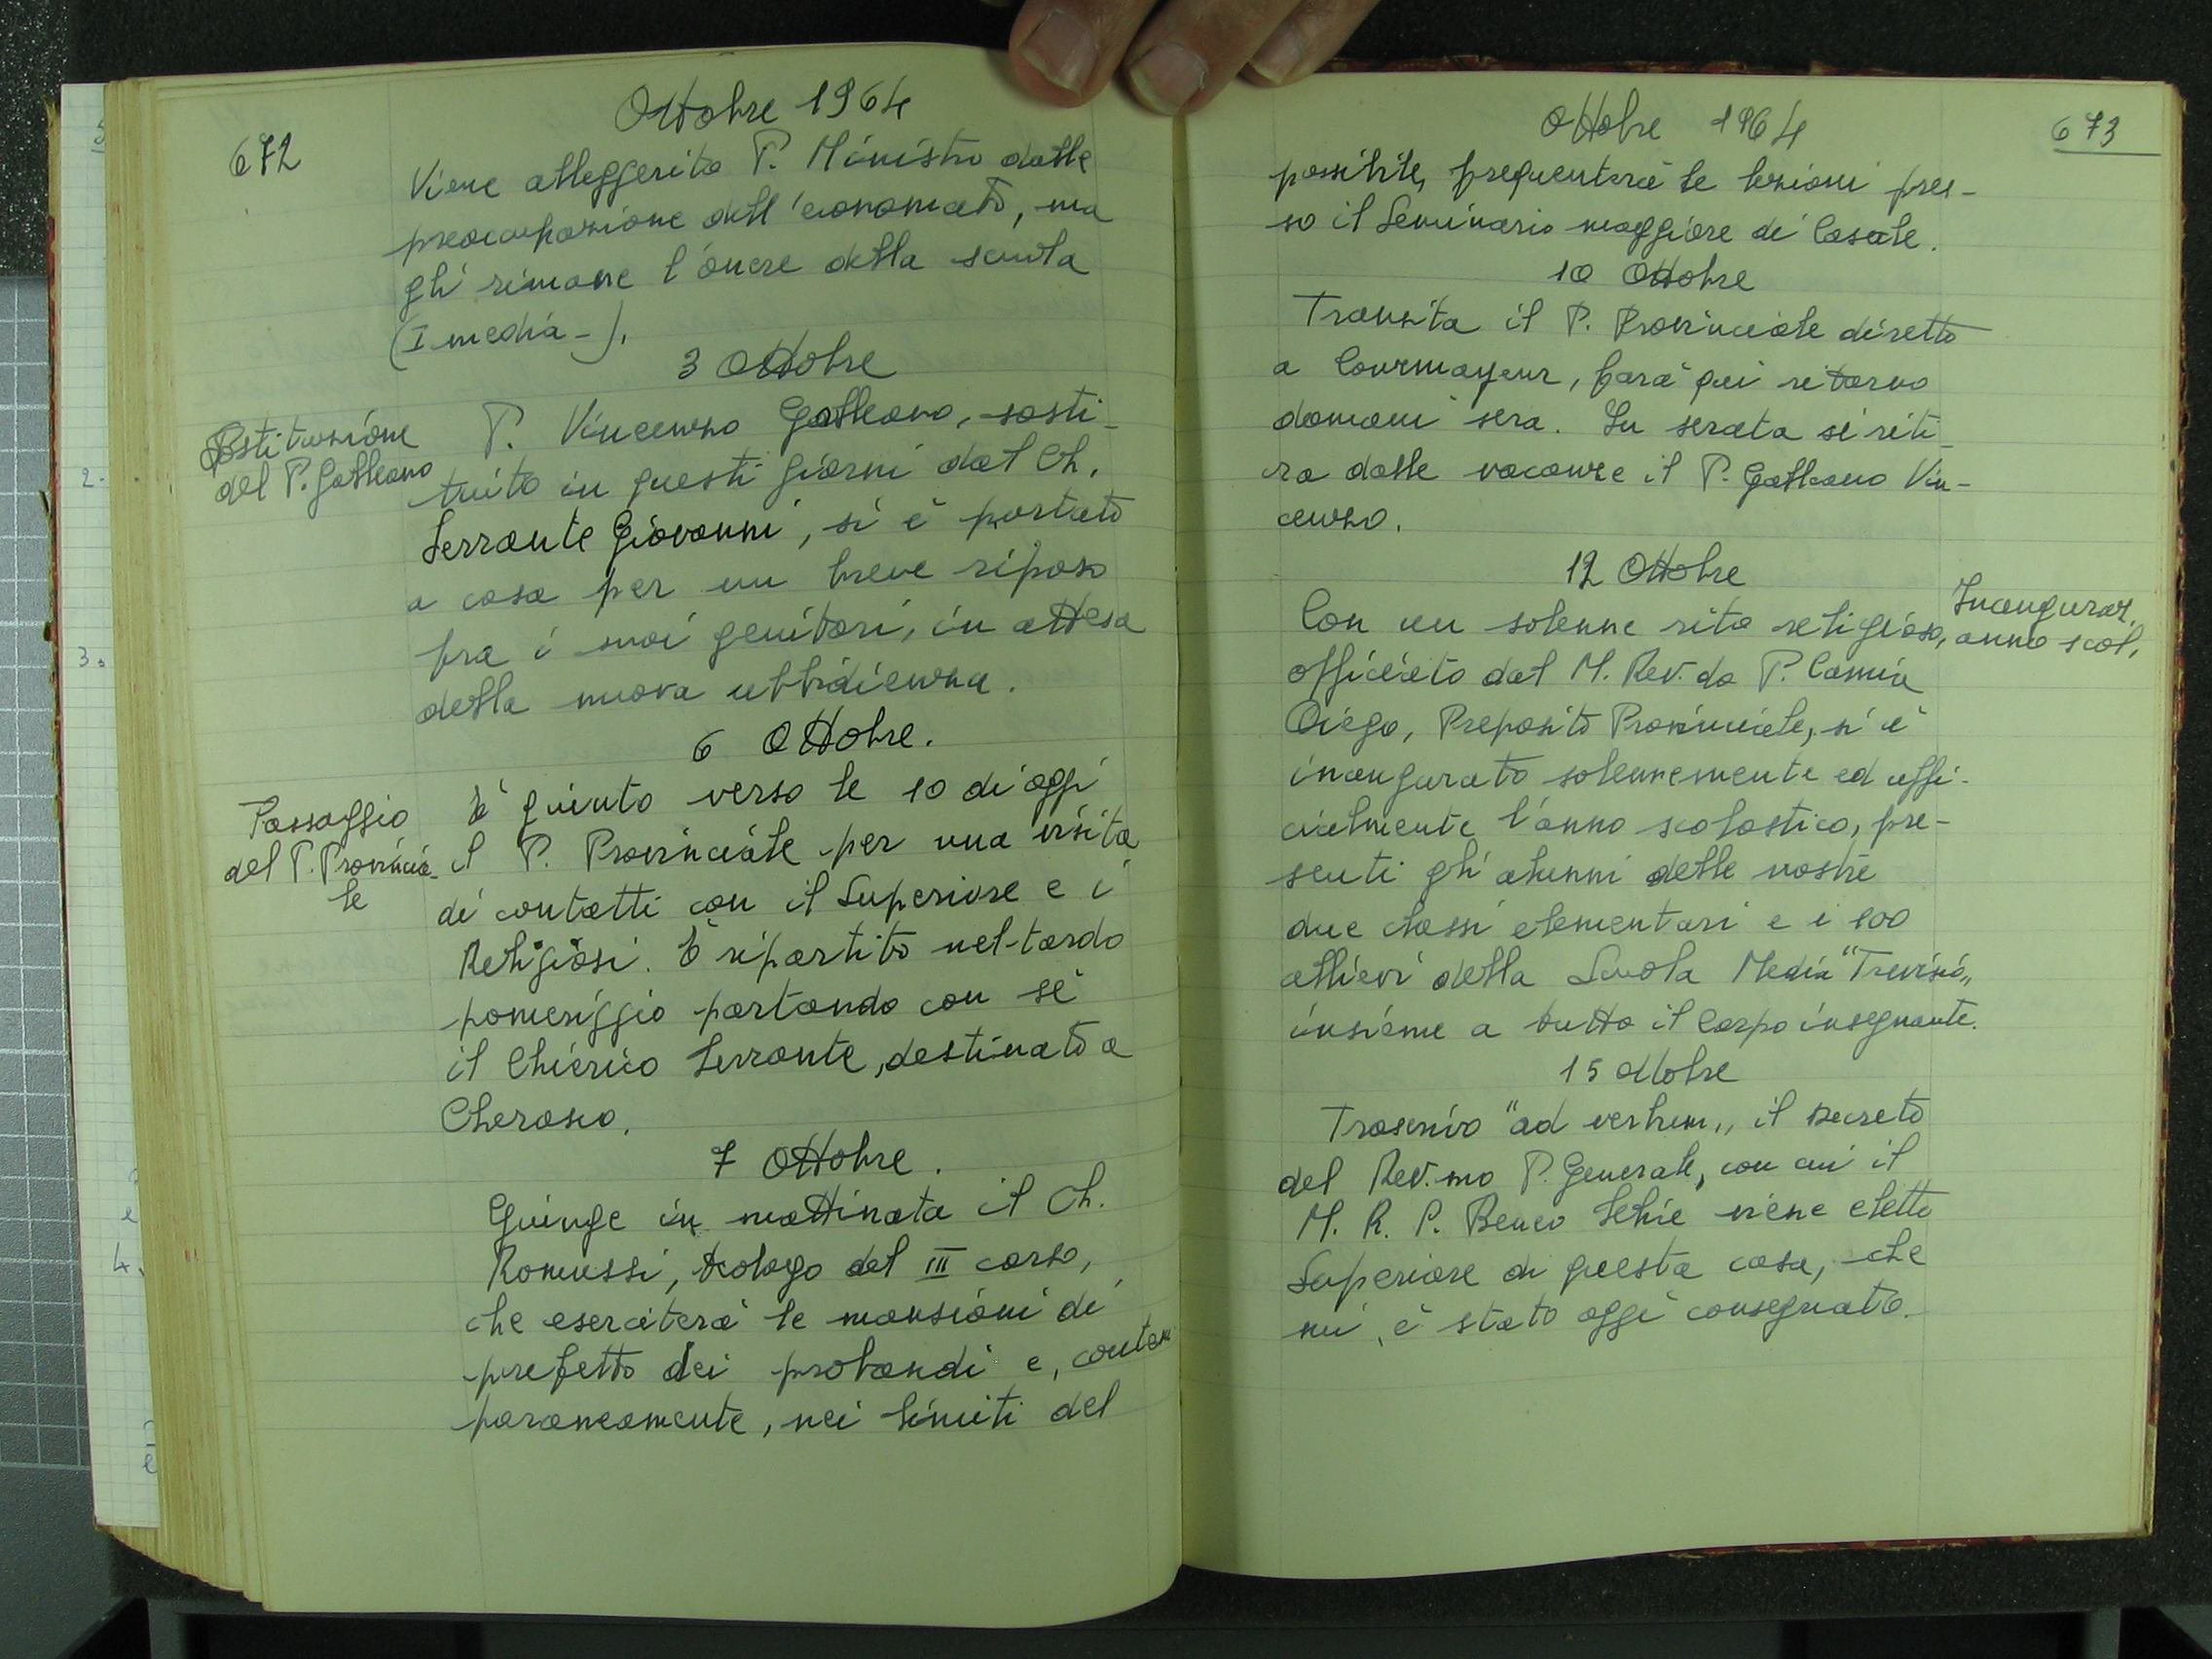 672
Ottobre 1964
Viene alleggerito P. Ministro dalle
preoccupazione dell'economato, ma
gli rimane l'onere della scuola
(I media-).
3 Ottobre
Sostituzione
del P. Galleano
P. Vincenzo Galleano, sosti-
tuito in questi giorni dal Ch.
Serrante Giovanni, si è portato
a casa per un breve riposo
fra i suoi genitori, in attesa
della nuova ubbidienza.
6 Ottobre.
Passaggio
del P. Provincia-
le
È giunto verso le 10 di oggi
il P. Provinciale per una visita
di contatti con il Superiore e i
Religiosi. È ripartito nel tardo
pomeriggio portando con sé
il Chierico Serrante, destinato a
Cherasco.
7 Ottobre.
Giunge in mattinata il Ch.
Romussi, teologo del III corso,
che eserciterà le mansioni di
prefetto dei probandi e, contem
poraneamente, nei limiti del
Ottobre 1964
673
possibile, frequenterà le lezioni pres-
so il Seminario maggiore di Casale.
10 Ottobre
Transita il P. Provinciale diretto
a Courmayeur, farà qui ritorno
domani sera. In serata si riti-
ra dalle vacanze il P. Galleano Vin-
cenzo.
12 Ottobre
Inaugurar.
anno scol.
Con un solenne rito religioso,
officiato dal M. Rev. do P. Camia
Diego, Preposito Provinciale, si è
inaugurato solennemente ed uffi-
cialmente l'anno scolastico, pre-
senti gli alunni delle nostre
due classi elementari e i 100
allievi della Scuola Media "Trevisio"
insieme a tutto il Corpo insegnante.
15 Ottobre
Trascrivo "ad verbum" il Decreto
del Rev. mo P. Generale, con cui il
M. R. P. Beneo viene eletto
Superiore di questa casa, che
mi è stato oggi consegnato.